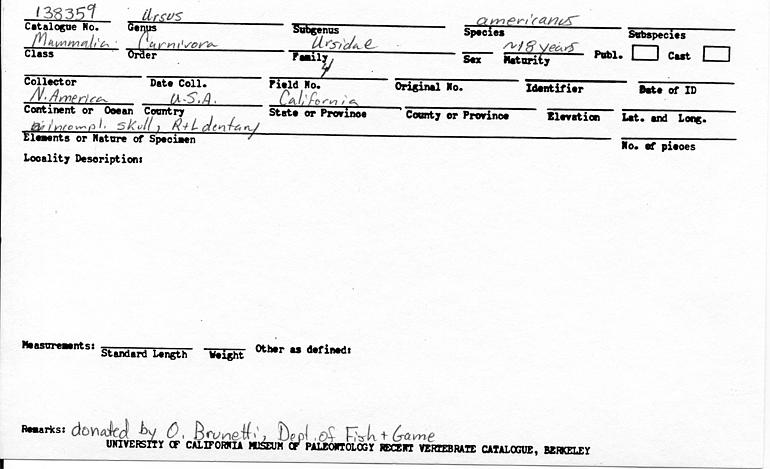 138359 Ursus americanus
Catalogue No. Genus Subgenus Species Subspecies
Mammalia Carnivora Ursidae ~18 years Publ. Cast
Class Order Family Sex Maturity
4
Collector Date Coll. Field No. Original No. Identifier Date of ID
N. America U.S.A. California
Continent or Ocean Country State or Province County or Province Elevation Lat. and Long.
incompl. skull, R+L dentary
Elements or Nature of Specimen No. of pieces
Locality Description:
Measurements: Standard Length Weight Other as defined:
Remarks: donated by O. Brunetti, Dept. of Fish + Game
UNIVERSITY OF CALIFORNIA MUSEUM OF PALEONTOLOGY RECENT VERTEBRATE CATALOGUE, BERKELEY